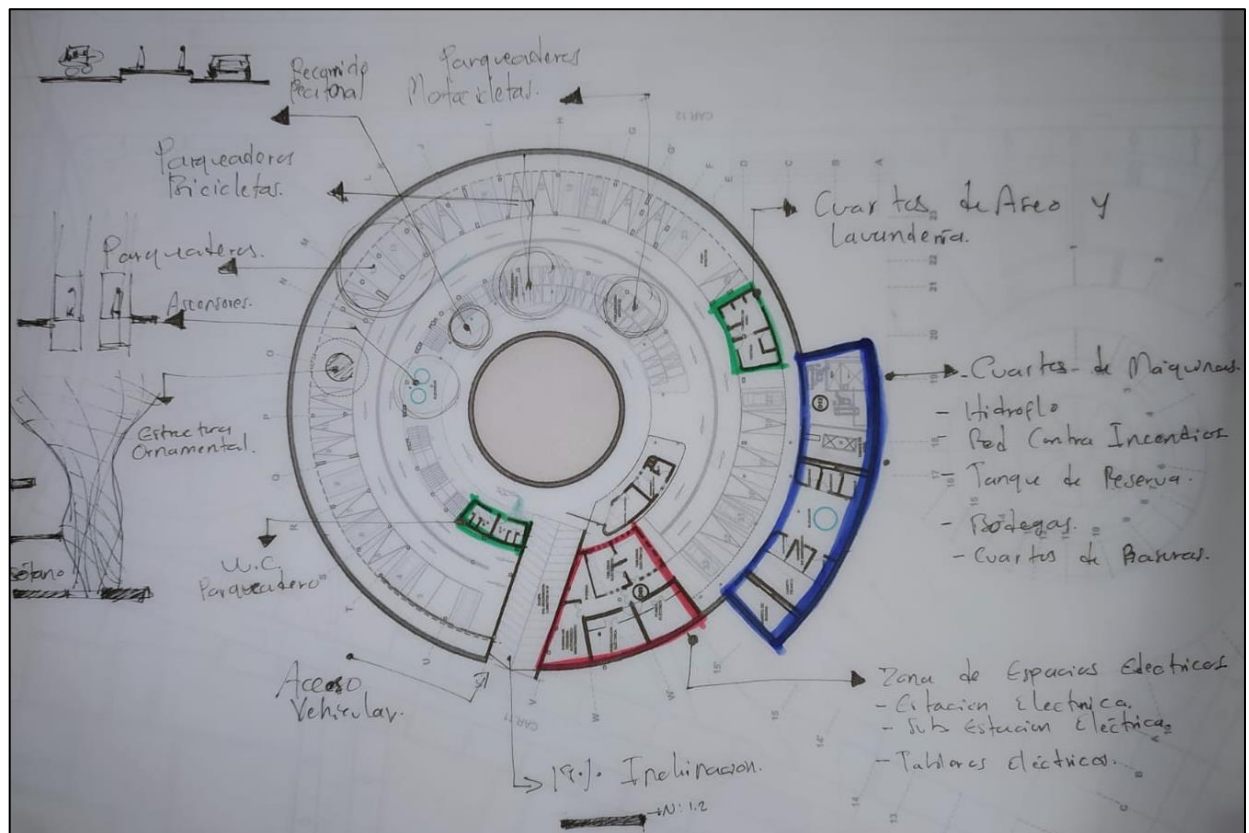 Recorrido
Peatonal
Parqueaderos
Motocicletas.
Parqueaderos
Bicicletas.
Parqueaderos
Ascensores.
Estructura
Ornamental.
Sótano
W.C
Parqueadero
Acceso
Vehicular.
19% Inclinacion.
N: 1.2
Cuartos de Aseo y
Lavandería.
- Cuartos de Máquinas.
- Hidroflo
- Red Contra Incendios
- Tanque de Reserva.
- Bodegas.
- Cuartos de Basuras.
Zona de Espacios Electricos
- Estacion Electrica.
- Sub Estacion Eléctrica
- Tableros eléctricos.
CAR. 12
CAR. 11
A
B
C
D
E
F
G
G'
H
I
J
L
M
N
O
P
Q
R
S
T
U
V
W
23
22
21
20
19
18
17
16
15
15'
14'
14
13